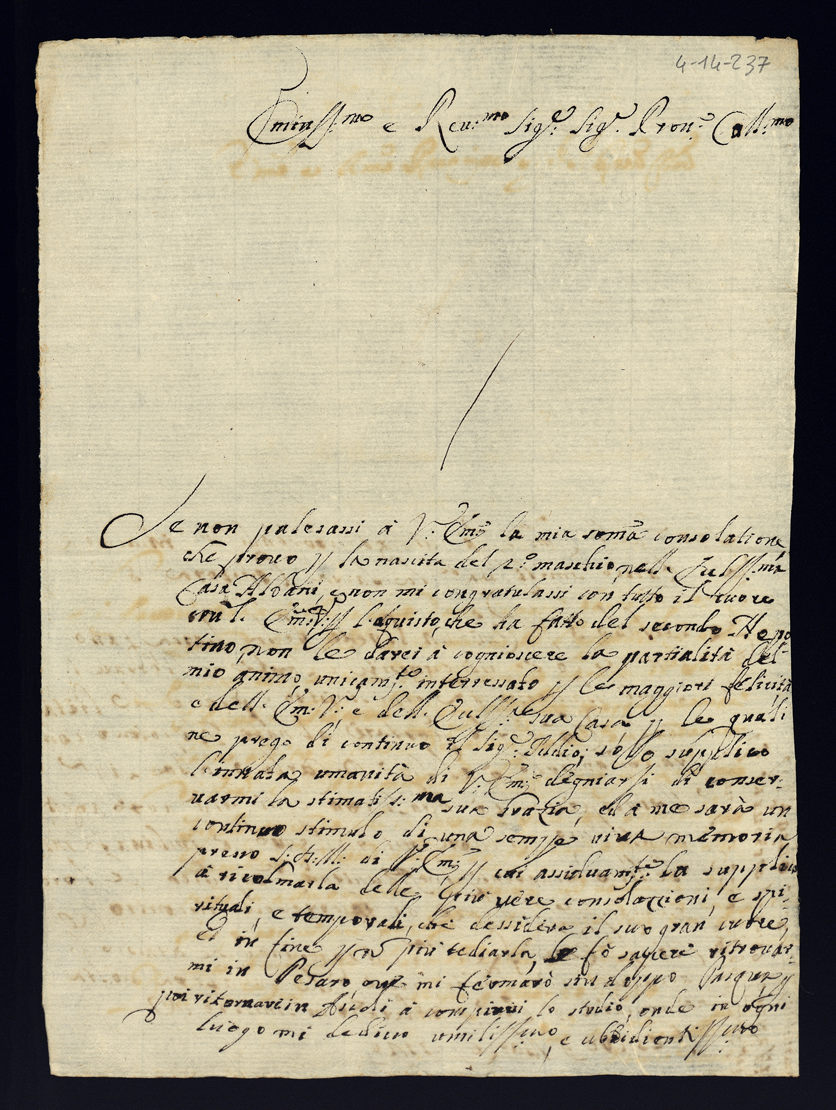 4-14-237
Eminss:mo e Reu:mo Sig:e Sig:r Pron:e Coll:mo
Se non palesassi à V: Em:a la mia somā consolatione
che prouo p la nascita del 2:o maschio nell
Casa Albani, e non mi congratulassi con tutto il cuore
con l' Em:a V: p l'aquisto, che ha fatto del secondo Nepo
tino, non le darei à cognioscere la partialità del
mio animo, unicam:te interressato p le maggiori felicità
e dell' Em: V: e dell' sua Casa p le quali
ne prego di continuo il Sig:e Iddio; solo supplico
l'innata umanità di V: Em:a degniarsi di conser-
uarmi la stimatiss:ma sua Grazia, ed a me sarà un
continuo stimolo di una sempe uiua memoria
presso S: di V: Em:a p cui assiduam:te la supplico
à ricolmarla delle piu uere consolazioni, e spi-
rituali, e temporali, che dessidera il suo gran cuore,
et in fine p nō piu tediarla, le fò sapere ritrouar-
mi in Pesaro, oue mi fermarò sin doppo Pasqua p
poi ritornare in Ascoli à compirui lo studio, onde in ogni
luogo mi dedico umilissimo, e ubbidientissimo